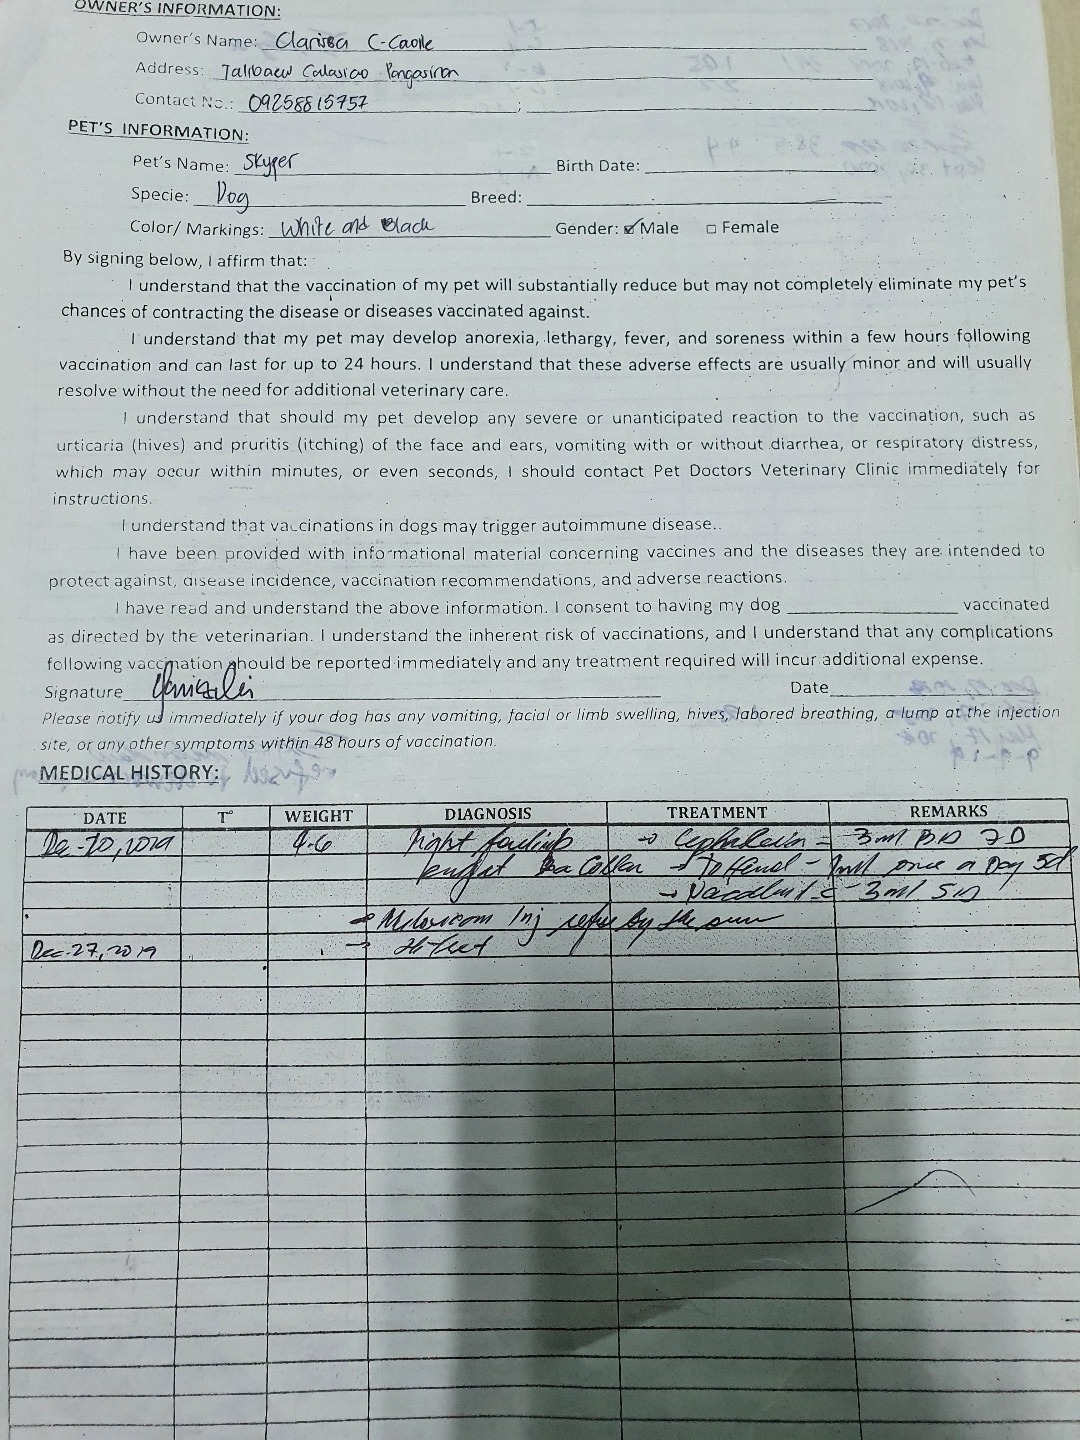 OWNER'S INFORMATION:
Owner's Name: Clarissa C-Caole
Address: Talibaew Calasiao Pangasinan
Contact No.: 09258815757
PET'S INFORMATION:
Pet's Name: Skyper Birth Date:
Specie: Dog Breed:
Color/ Markings: White and Black Gender: ☑ Male ☐ Female
By signing below, I affirm that:
I understand that the vaccination of my pet will substantially reduce but may not completely eliminate my pet's
chances of contracting the disease or diseases vaccinated against.
I understand that my pet may develop anorexia, lethargy, fever, and soreness within a few hours following
vaccination and can last for up to 24 hours. I understand that these adverse effects are usually minor and will usually
resolve without the need for additional veterinary care.
I understand that should my pet develop any severe or unanticipated reaction to the vaccination, such as
urticaria (hives) and pruritis (itching) of the face and ears, vomiting with or without diarrhea, or respiratory distress,
which may occur within minutes, or even seconds, I should contact Pet Doctors Veterinary Clinic immediately for
instructions.
I understand that vaccinations in dogs may trigger autoimmune disease..
I have been provided with informational material concerning vaccines and the diseases they are intended to
protect against, disease incidence, vaccination recommendations, and adverse reactions.
I have read and understand the above information. I consent to having my dog ____ vaccinated
as directed by the veterinarian. I understand the inherent risk of vaccinations, and I understand that any complications
following vaccination should be reported immediately and any treatment required will incur additional expense.
Signature Date
Please notify us immediately if your dog has any vomiting, facial or limb swelling, hives, labored breathing, a lump at the injection
site, or any other symptoms within 48 hours of vaccination.
MEDICAL HISTORY:
DATE T° WEIGHT DIAGNOSIS TREATMENT REMARKS
Dec-20, 2019 9.6 Right → Cephalexin = 3ml BID 7D
Collar → - 1ml once a Day 5d
→ - 3ml SID
→ Meloxicam Inj by the
Dec-27, 2019 →